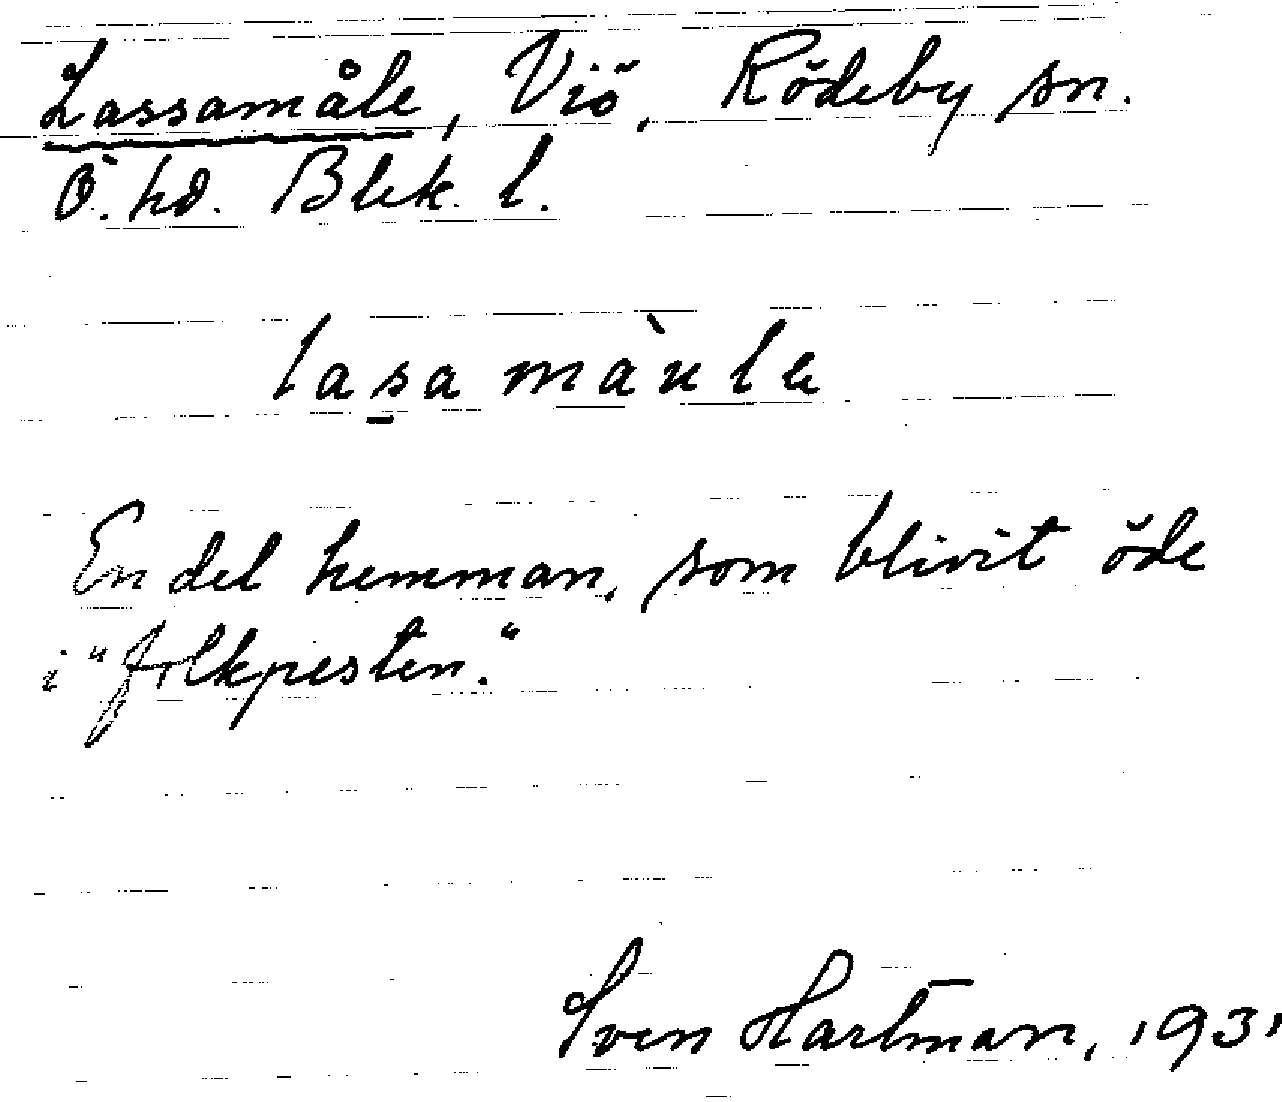 Lassamåle, Viö, Rödeby sn.
Ö. hd. Blek. l.
las̱amàule
En del hemman, som blivit öde
i "folkpesten."
Sven Hartman, 1931